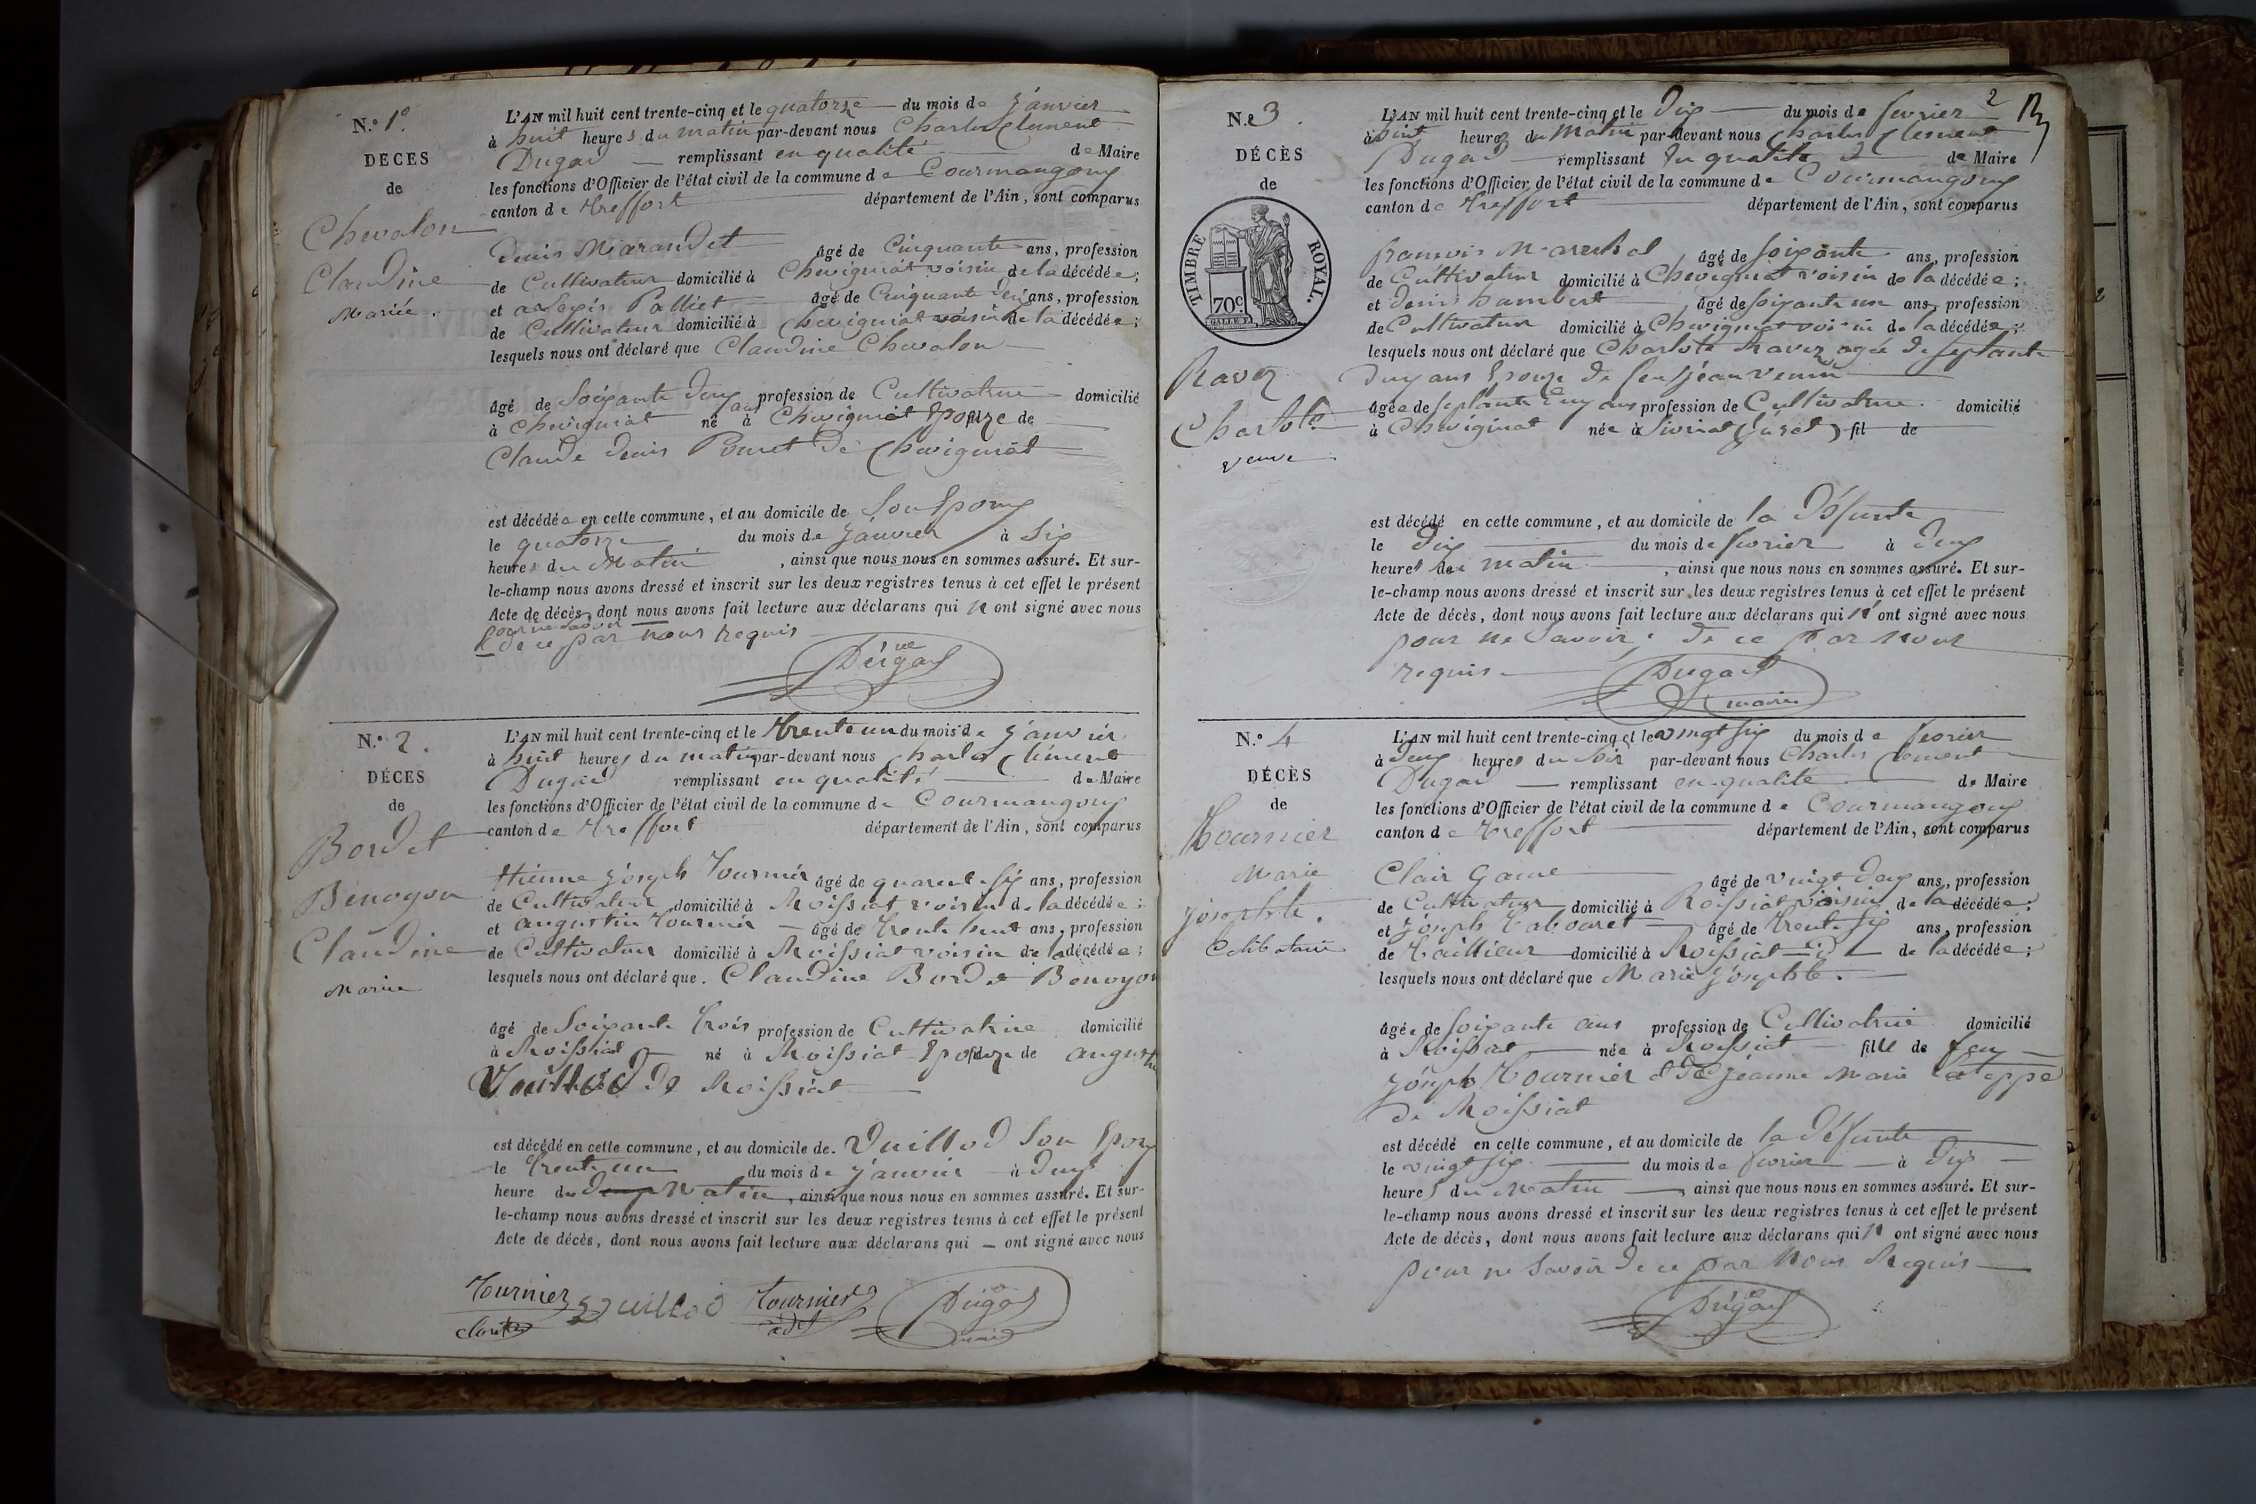 N.º 1º.
DÉCES
de
Chevalon
Claudine
Mariée.
L'AN mil huit cent trente-cinq et le quatorze du mois de janvier
à huit heures du matin par-devant nous Charles Clement
Dugad remplissant en qualité de Maire
les fonctions d'Officier de l'état civil de la commune de Courmangoux
canton de Treffort département de l'Ain, sont comparus
Denis Marandet âgé de Cinquante ans, profession
de Cultivateur domicilié à Chevigniat voisin de la décédée;
et alexis Palliet âgé de Cinquante six ans, profession
de Cultivateur domicilié à Chevigniat voisin de la décédée;
lesquels nous ont déclaré que Claudine Chevalon
âgé de Soixante deux ans profession de Cultivatrice domicilié
à Chevigniat né à Chevigniat Epouze de
Claude Denis Poncet de Chevigniat
est décédée en cette commune, et au domicile de Son Epoux
le quatorze du mois de janvier à Six
heures du Matin, ainsi que nous nous en sommes assuré. Et sur-
le-champ nous avons dressé et inscrit sur les deux registres tenus à cet effet le présent
Acte de décès, dont nous avons fait lecture aux déclarans qui n ont signé avec nous
pour ne savoir
de ce par nous requis
Dugad
N.º 2.
DÉCES
de
Bordet
Benoyon
Claudine
Mariée
L'AN mil huit cent trente-cinq et le Trente un du mois de janvier
à huit heures du matin par-devant nous Charles Clément
Dugad remplissant en qualité de Maire
les fonctions d'Officier de l'état civil de la commune de Courmangoux
canton de Treffort département de l'Ain, sont comparus
Etienne Joseph Tournier âgé de quarente Six ans, profession
de Cultivateur domicilié à Roissiat voisin de la décédée;
et augustin Tournier âgé de Trente huit ans, profession
de Cultivateur domicilié à Roissiat voisin de la décédée;
lesquels nous ont déclaré que Claudine Bordet Benoyon
âgé de Soixante Trois profession de Cultivatrice domicilié
à Roissiat né à Roissiat Epouze de august
Vuillod de Roissiat
est décédé en cette commune, et au domicile de Vuillod Son Epoux
le Trente un du mois de janvier à deux
heure du Matin, ainsi que nous nous en sommes assuré. Et sur-
le-champ nous avons dressé et inscrit sur les deux registres tenus à cet effet le présent
Acte de décès, dont nous avons fait lecture aux déclarans qui — ont signé avec nous
Tournier Vuillod Tournier Dugad
maire
N.º 3.
DÉCÈS
de
TIMBRE ROYAL.
70c.
Ravez
Charlote
veuve
2
L'AN mil huit cent trente-cinq et le Dix du mois de fevrier
à huit heures du Matin par-devant nous Charles Clement
Dugad remplissant en qualité de Maire
les fonctions d'Officier de l'état civil de la commune de Courmangoux
canton de Treffort département de l'Ain, sont comparus
francois Marechal âgé de Soixante ans, profession
de Cultivateur domicilié à Chevigniat voisin de la décédée;
et denis hambert âgé de Soixante un ans, profession
de Cultivateur domicilié à Chevigniat voisin de la décédée;
lesquels nous ont déclaré que Charlote Ravez agée de Septante
deux ans Epouze de feu jean venin
âgée de Septante deux ans profession de Cultivatrice domicilié
à Chevigniat née à Civriat (Jura) fil de
est décédé en cette commune, et au domicile de la Défunte
le dix du mois de fevrier à deux
heures du matin, ainsi que nous nous en sommes assuré. Et sur-
le-champ nous avons dressé et inscrit sur les deux registres tenus à cet effet le présent
Acte de décès, dont nous avons fait lecture aux déclarans qui n' ont signé avec nous
pour ne Savoir, de ce par nous
requis
Dugad
maire
N.º 4
DÉCÈS
de
Tournier
Marie
josephte.
Celibataire
L'AN mil huit cent trente-cinq et le vingt six du mois de fevrier
à deux heures du Soir par-devant nous Charles Clement
Dugad remplissant en qualité de Maire
les fonctions d'Officier de l'état civil de la commune de Courmangoux
canton de Treffort département de l'Ain, sont comparus
Clair Game âgé de vingt deux ans, profession
de Cultivateur domicilié à Roissiat voisin de la décédée;
et joseph Tabouret âgé de Trente Six ans, profession
de Taillieur domicilié à Roissiat id de la décédée;
lesquels nous ont déclaré que Marie josephte.
âgée de Soixante ans profession de Cultivatrice domicilié
à Roissiat née à Roissiat fille de feu
joseph Tournier et de jeanne Marie
de Roissiat
est décédé en cette commune, et au domicile de la Défunte
le vingt six du mois de fevrier à dix
heures du Matin, ainsi que nous nous en sommes assuré. Et sur-
le-champ nous avons dressé et inscrit sur les deux registres tenus à cet effet le présent
Acte de décès, dont nous avons fait lecture aux déclarans qui n ont signé avec nous
pour ne Savoir de ce par Nous Requis
Dugad